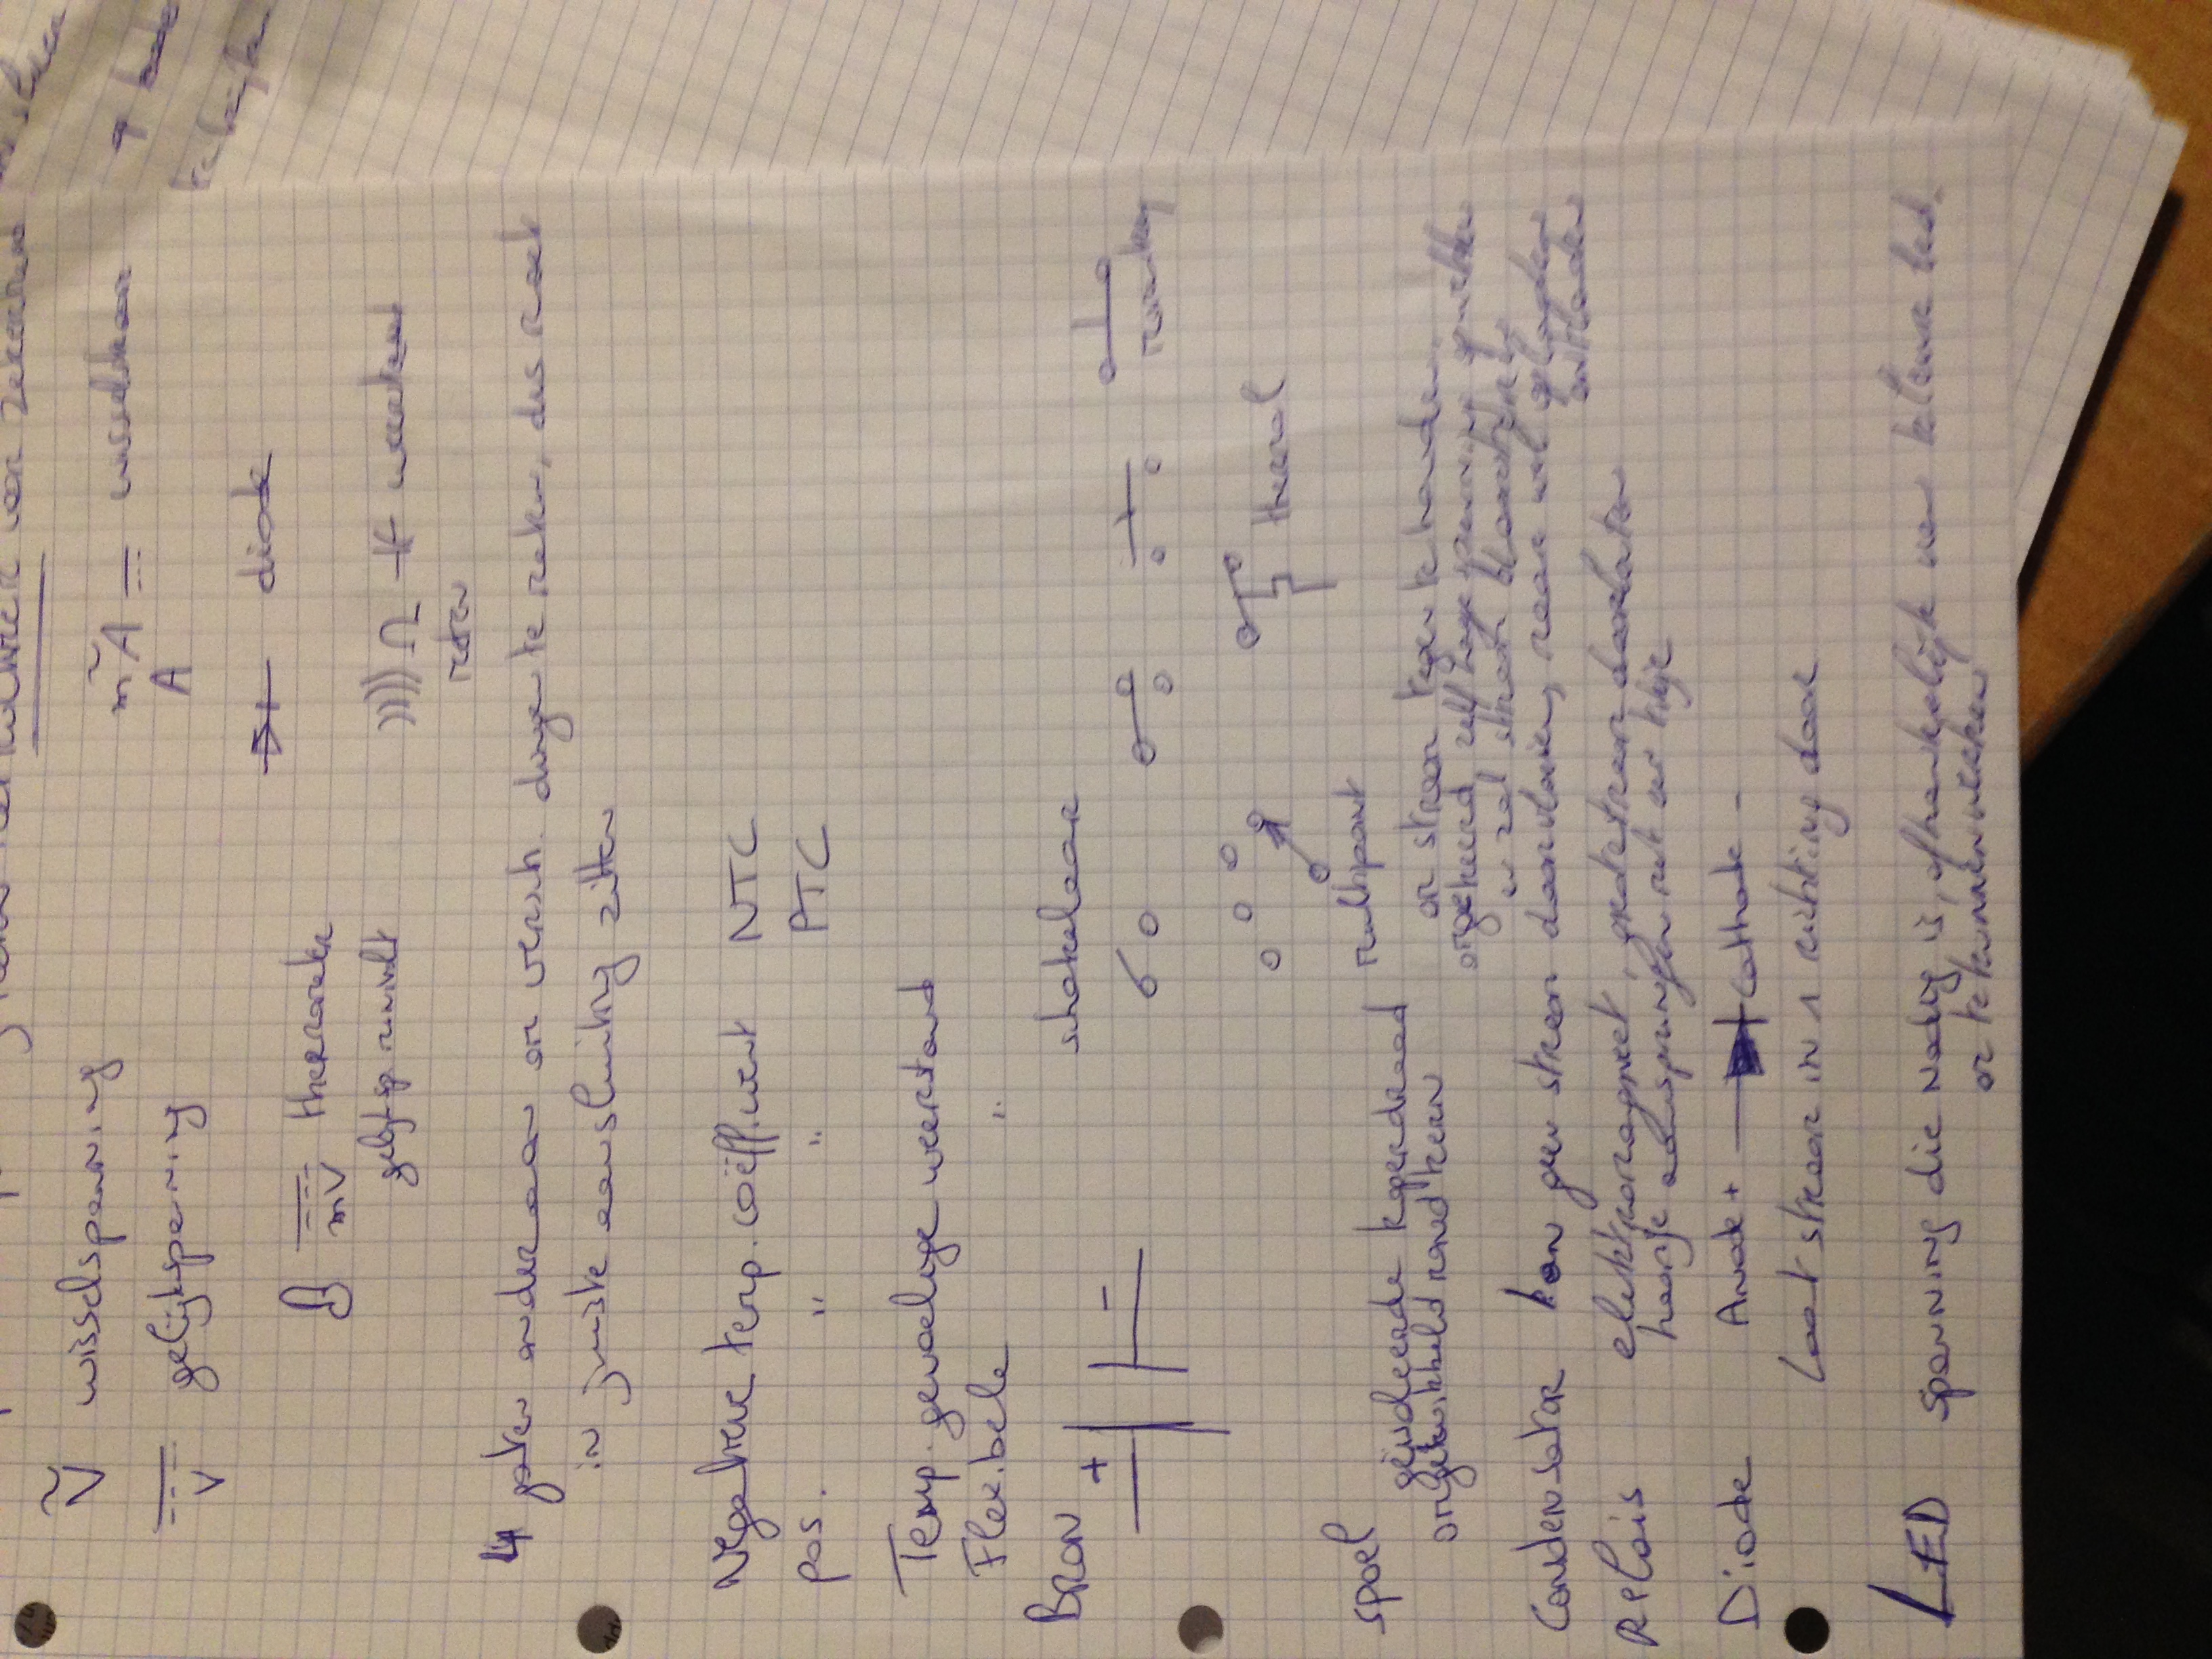 voor zekerheid
Ṽ wisselspanning
mA = wisselstroom
A
V gelijkspanning
diode
mV thermometer
gelijksp. minivolt
Ω weerstand
meten
4 gaten onderaan om versch. dingen te meten, dus moet
in juiste aansluiting zitten
Negatieve temp. coëfficient NTC
pos. " " PTC
Temp. gevoelige weerstand
Flexibele "
Bron + -
schakelaar
thermal
multipoint
spoel
geïsoleerde koperdraad
omgewikkeld rond kern
om stroom tegen te houden.
omgekeerd, zelf hoge spanning opwekken
en zal stroom
Condensator kan geen stroom doorvloeien, maar wel opladen
ontladen
Relais elektromagneet, grote stroom doorlaten
hoor je aanspringen met een klikje
Diode Anode + Cathode -
Laat stroom in 1 richting door
LED spanning die nodig is, afhankelijk van kleur led.
om te kunnen werken